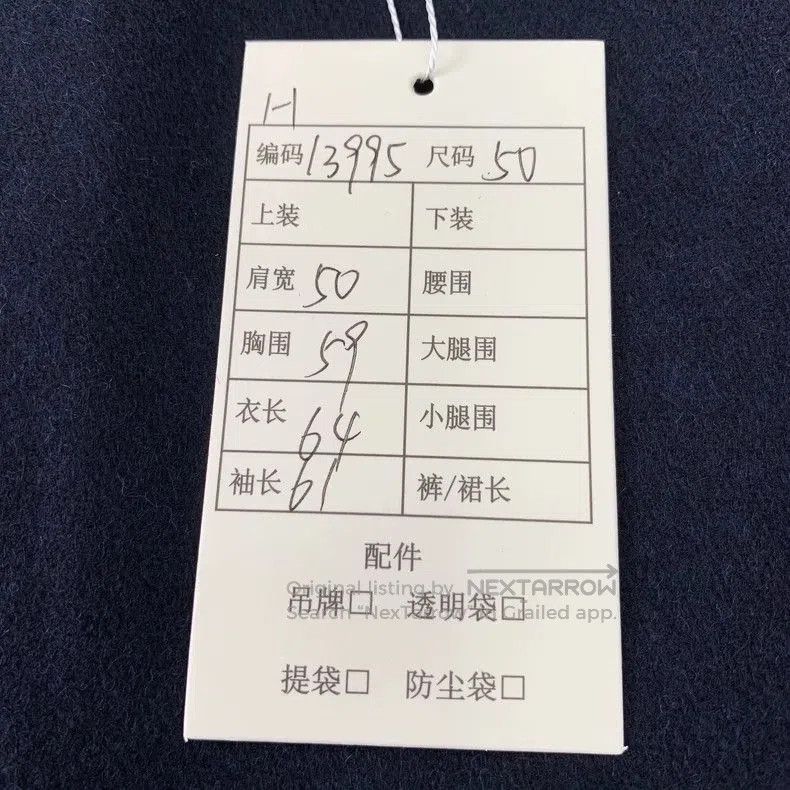 H
编码 13995 尺码 50
上装 下装
肩宽 50 腰围
胸围 59 大腿围
衣长 64 小腿围
袖长 61 裤/裙长
配件
Original listing by NEXTARROW
吊牌□ 透明袋□
Search "NexTarrow" on Grailed app.
提袋□ 防尘袋□